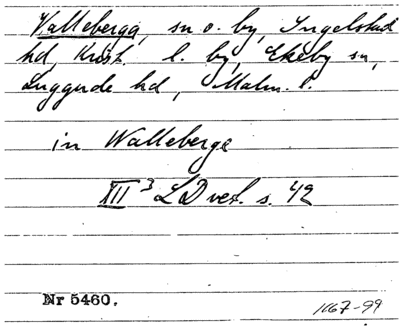 Vallebergg, sn o. by, Ingelstad
hd, Krist. l. by, Ekeby sn,
Luggude hd, Malm. l.
in Walleberge
XII³ LD vet. s. 42
Nr 5460.
1667-99